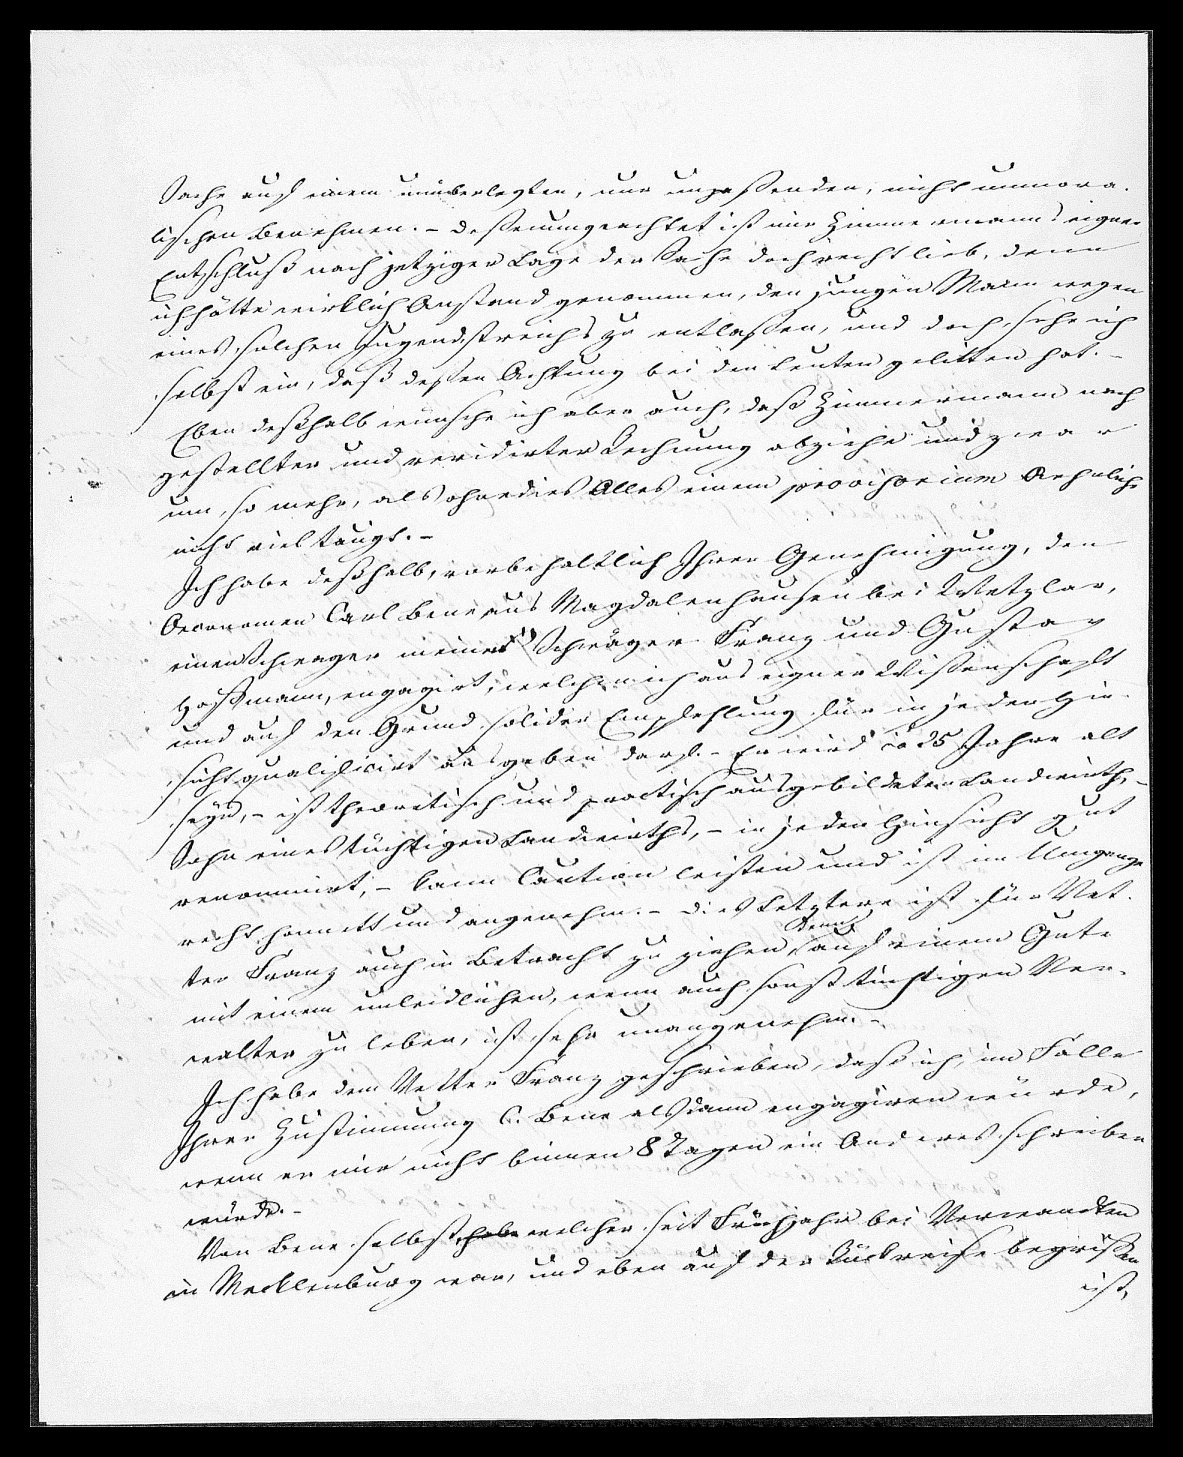 Sache auf einem unüberlegten, nur unpassenden, nicht unmora-
lischen Benehmen. – Dessenungeachtet ist mir Zimmermanns eigner
Entschluß nach jetziger Lage der Sache doch recht lieb, denn
ich hätte wirklich Anstand genommen, den jungen Mann wegen
eines solchen Jugendstreichs zu entlaßen, und doch sehe ich
selbst ein, daß dessen Achtung bei den Leuten gelitten hat. –
Eben deßhalb wünsche ich aber auch, daß Zimmermann nach
gestellter und revidirter Rechnung abziehe und zwar
um so mehr, als ohnedies Alles einem provisorium Aehnliche
nicht viel taugt. –
Ich habe deßhalb, vorbehaltlich Ihrer Genehmigung, den
Oeconomen Carl Bene aus Magdalenhausen bei Wetzlar,
einen Schwager meiner Schwäger Franz und Gustav
Hoffmann, engagirt, welchen ich aus eigner Wissenschaft
und auf den Grund solider Empfehlung für in jeder Hin-
sicht qualificirt ausgeben darf. – Er wird ca 25 Jahre alt
seyn, – ist theoretisch und practisch ausgebildeter Landwirth, –
Sohn eines tüchtigen Landwirths, – in jeder Hinsicht gut
renommirt, – kann Caution leisten und ist im Umgange
recht honnett und angenehm. – Dies Letztere ist für Vet-
ter Franz auch in Betracht zu ziehen, denn auf einem Gute
mit einem unleidlichen, wenn auch sonst tüchtigen Ver-
walter zu leben, ist sehr unangenehm. –
Ich habe dem Vetter Franz geschrieben, daß ich, im Falle
Ihrer Zustimmung C. Bene alsdann engagiren würde,
wenn er mir nicht binnen 8 Tagen ein Anderes schreiben
würde. –
Von Bene selbst, habe welcher seit Frühjahr bei Verwandten
in Mecklenburg war, und eben auf der Rückreise begriffen
ist,